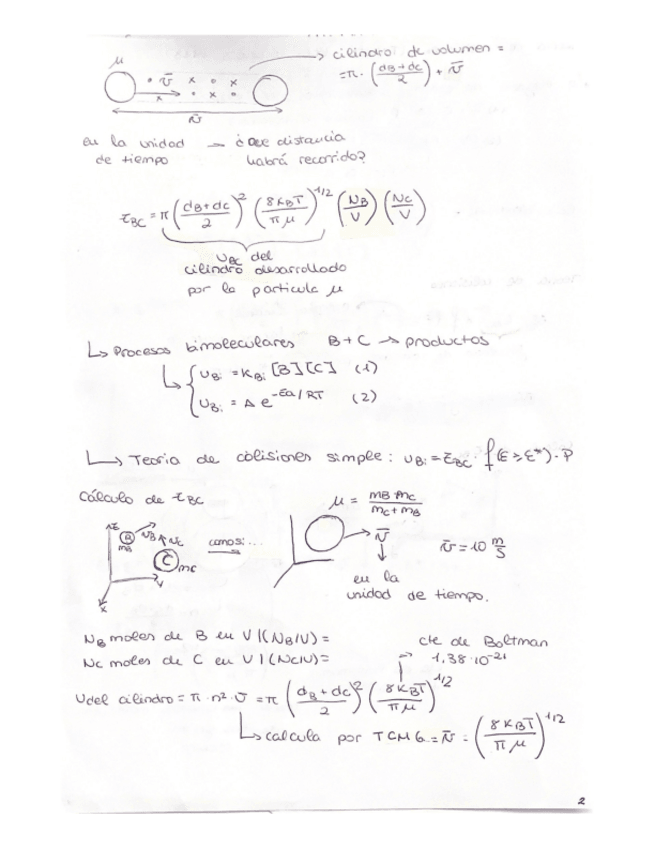 μ
→ cilindro de volumen =
= π · (dB + dc / 2) + v̄
v̄
v̄
en la unidad de tiempo → ¿Que distancia habrá recorrido?
τ_BC = π (dB + dc / 2)² (8 K_B T / π μ)^1/2 (N_B / V) (N_C / V)
U_BC del
cilindro desarrollado
por la particula μ
↳ Procesos bimoleculares B + C → productos
↳ { U_Bi = K_Bi [B][C] (1)
U_Bi = A e^-Ea/RT (2)
↳ Teoria de colisiones simple: U_Bi = Z_BC · f(E ≥ E*) · P
Cálculo de τ_BC
μ = m_B · m_C / m_C + m_B
z
B
m_B
N_B
N_C
C
m_C
y
x
como si:...
v̄
v̄ = 10 m/s
en la
unidad de tiempo.
N_B moles de B en V | (N_B/V) =
N_C moles de C en V | (N_C/V) =
cte de Boltman
1,38·10^-21
V del cilindro = π · n² · v̄ = π (d_B + dc / 2)² (8 K_B T / π μ)^1/2
↳ calcula por TCMG = v̄ = (8 K_B T / π μ)^1/2
2